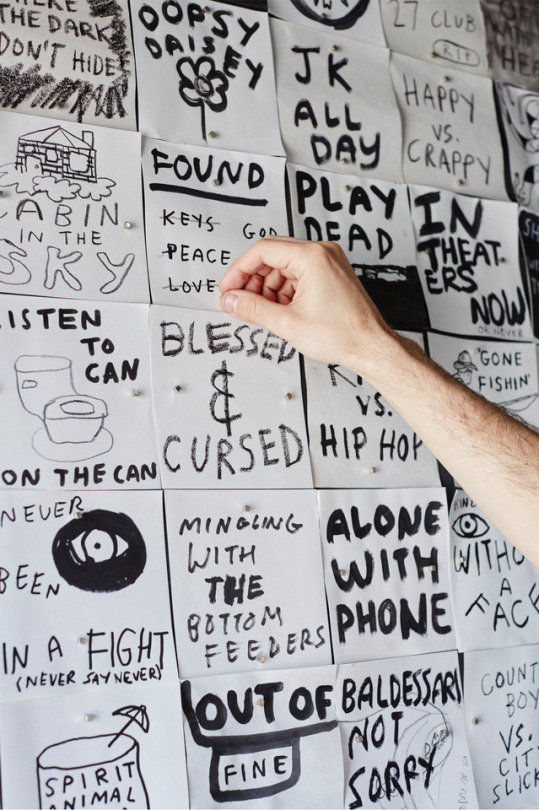 THE DARK
DON'T HIDE
OOPSY
DAISEY
JK
ALL
DAY
27 CLUB
RIP
HAPPY
VS.
CRAPPY
CABIN
IN THE
SKY
FOUND
KEYS GOD
PEACE
LOVE
PLAY
DEAD
IN
THEAT-
ERS
NOW
OR NEVER
LISTEN
TO
CAN
ON THE CAN
BLESSED
&
CURSED
VS.
HIP HOP
GONE
FISHIN'
NEVER
BEEN
IN A FIGHT
(NEVER SAY NEVER)
MINGLING
WITH
THE
BOTTOM
FEEDERS
ALONE
WITH
PHONE
A
FACE
SPIRIT
ANIMAL
OUT OF
FINE
BALDESSARI
NOT
SORRY
VS.